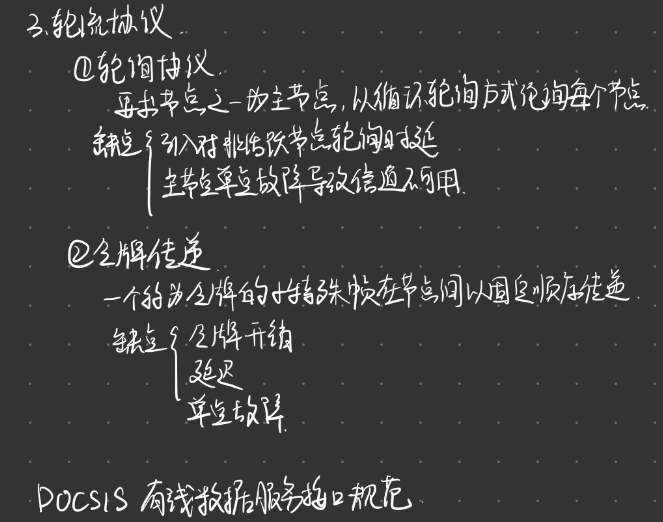 3.轮流协议.
①轮询协议.
要求节点之一为主节点,从循环轮询方式轮询每个节点.
缺点{引入对非活跃节点轮询时延
主节点单点故障导致信道不可用.
②令牌传递
一个称为令牌的小特殊帧在节点间以固定顺序传递.
缺点{令牌开销
延迟
单点故障.
DOCSIS 有线数据服务接口规范.